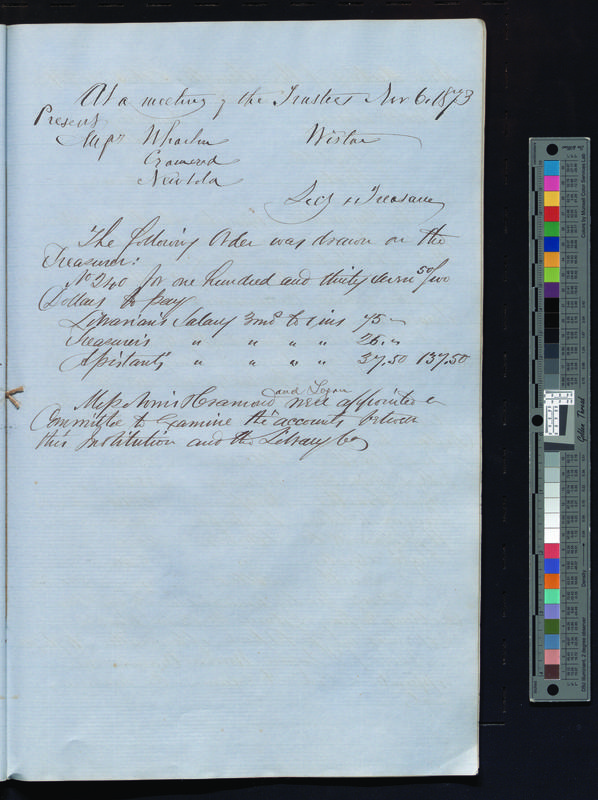 At a meeting of the Trustees Nov 6. 1873
Present
Messrs Wharton Wistar
Cramond
Newbold
Secy & Treasurer
The following Order was drawn on the
Treasurer:
No 240 for one hundred and thirty seven 50/100
Dollars to pay
Librarian's Salary 3 mos to 1 ins 75 "
Treasurer's " " " " 25. "
Assistant's " " " " 37.50 137.50
Mess Norris & Cramond and Logan were appointed a
Committee to Examine the accounts between
this Institution and the Library Co
Golden Thread